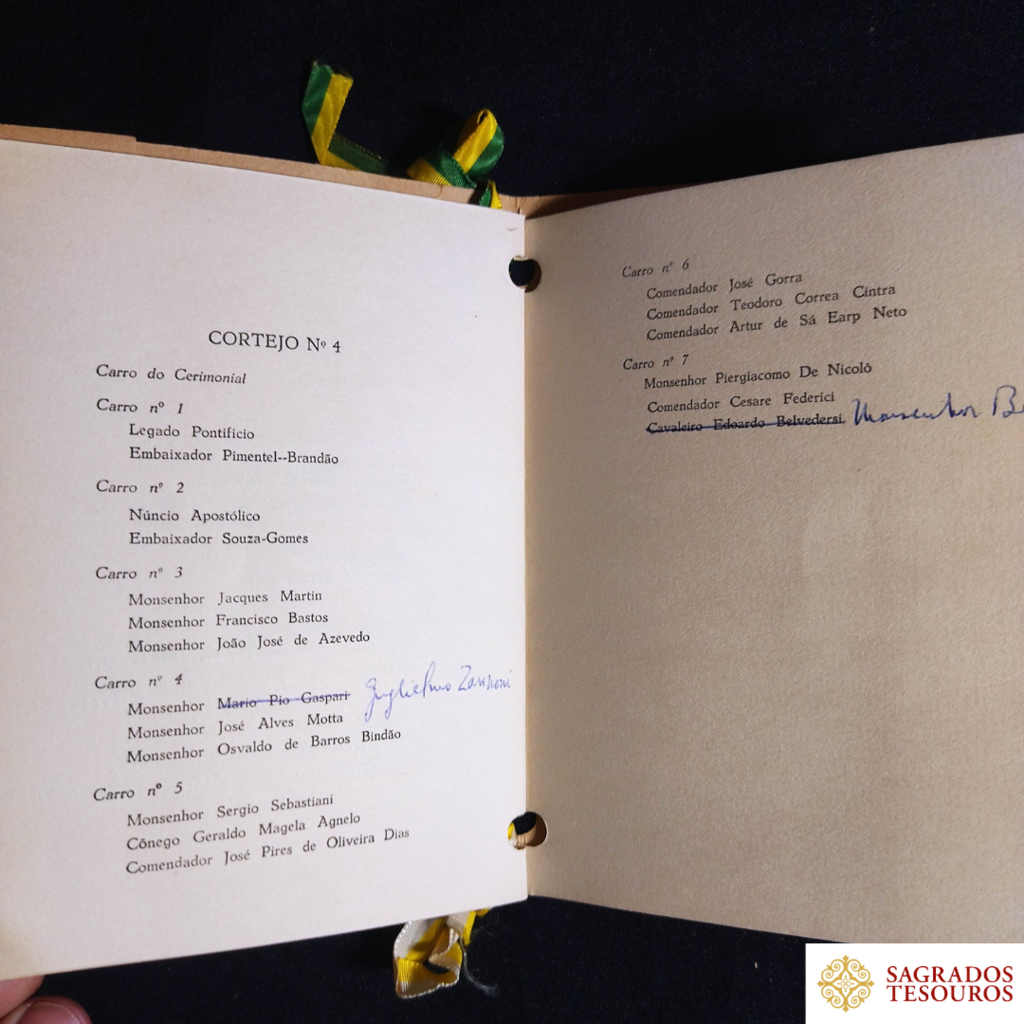 CORTEJO Nº 4
Carro do Cerimonial
Carro nº 1
Legado Pontifício
Embaixador Pimentel--Brandão
Carro nº 2
Núncio Apostólico
Embaixador Souza-Gomes
Carro nº 3
Monsenhor Jacques Martin
Monsenhor Francisco Bastos
Monsenhor João José de Azevedo
Carro nº 4
Monsenhor Mario Pio Gaspari Guglielmo Zannoni
Monsenhor José Alves Motta
Monsenhor Osvaldo de Barros Bindão
Carro nº 5
Monsenhor Sergio Sebastiani
Cônego Geraldo Magela Agnelo
Comendador José Pires de Oliveira Dias
Carro nº 6
Comendador José Gorra
Comendador Teodoro Correa Cintra
Comendador Artur de Sá Earp Neto
Carro nº 7
Monsenhor Piergiacomo De Nicolò
Comendador Cesare Federici
Cavaleiro Edoardo Belvedersi Monsenhor
SAGRADOS
TESOUROS